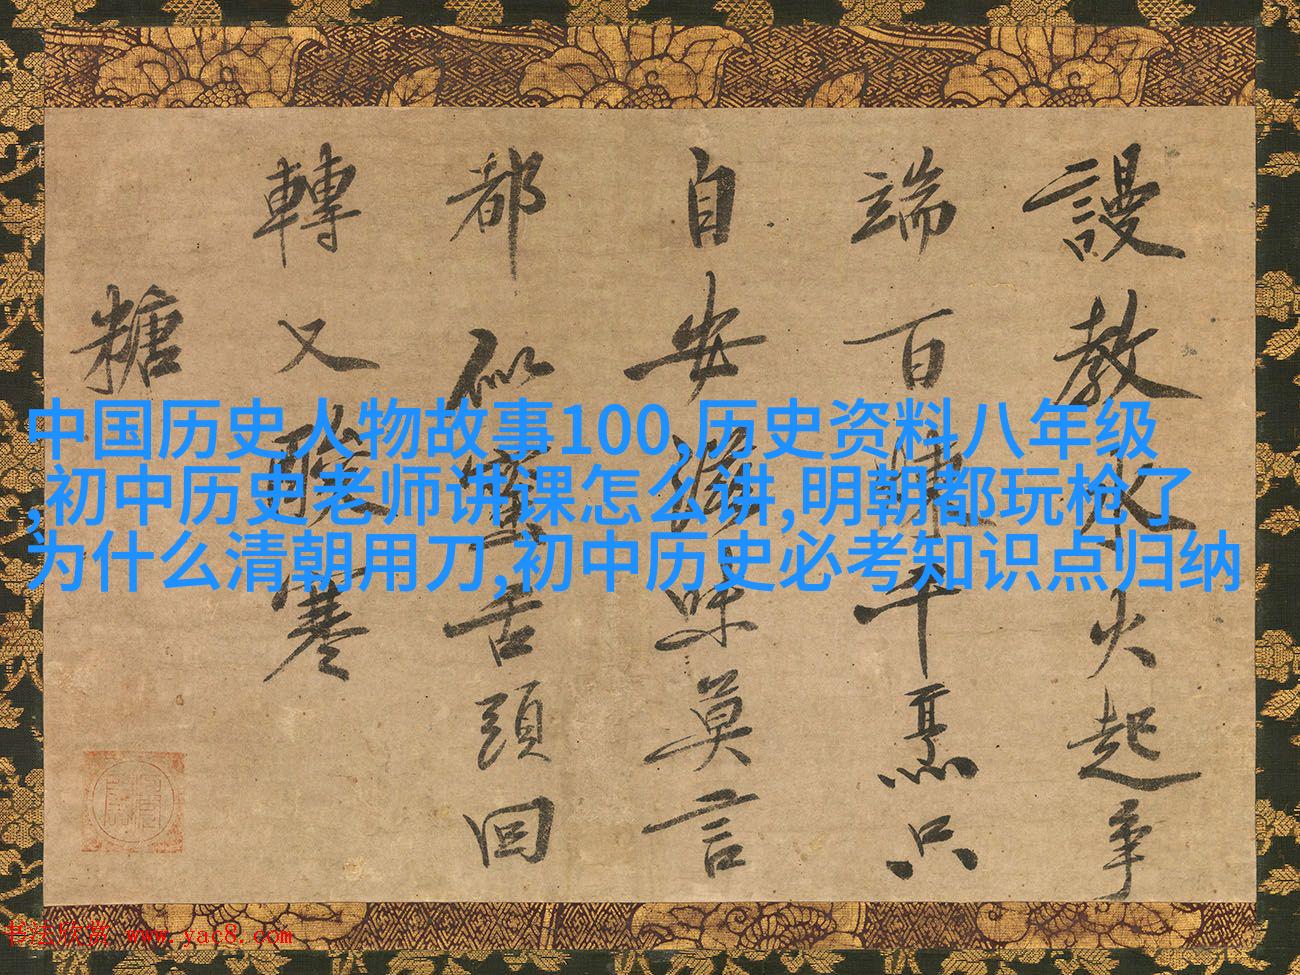 謾教文火起爭
端百煉千烹只
自安滋味莫言
都似蜜舌頭回
轉又酸寒
糖
中国历史人物故事100,历史资料八年级
,初中历史老师讲课怎么讲,明朝都玩枪了
为什么清朝用刀,初中历史必考知识点归纳
书法欣赏 www.yac8.com